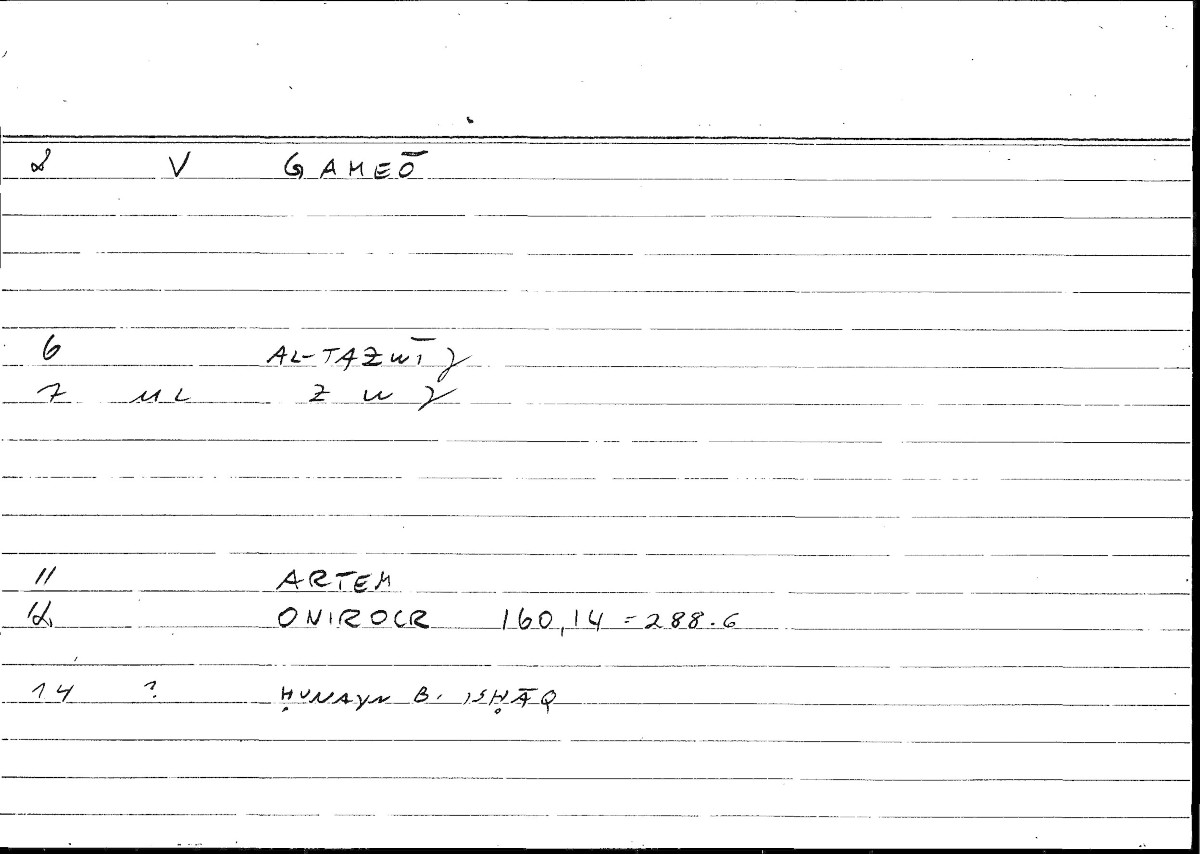 2 V GAMEŌ
6 AL-TAZWĪJ
7 ML Z W J
11 ARTEM
12 ONIROCR 160,14 = 288.6
14 ? ḤUNAYN B. ISḤĀQ